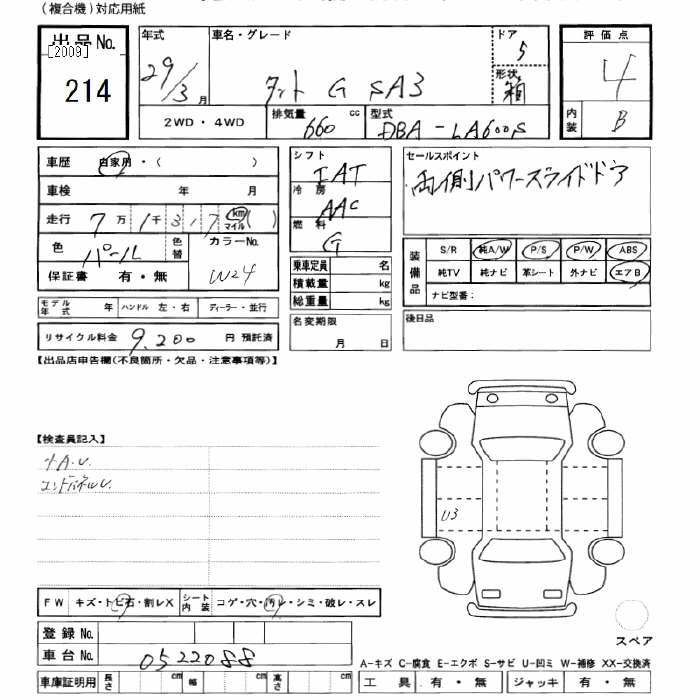 (複合機)対応用紙
出品No.
[2009]
214
年式
29/3月
車名・グレード
タント G SA3
ドア
5
形状
箱
2WD・4WD
排気量
660 cc
型式
DBA-LA600S
評価点
4
内装
B
車歴 自家用・( )
車検 年 月
走行 7万1千317 km マイル ( )
色 パール
色替
カラーNo.
W24
保証書 有・無
モデル年式 年 ハンドル 左・右 ディーラー・並行
リサイクル料金 9,200 円 預託済
シフト
IAT
冷房
AAC
燃料
G
乗車定員 名
積載量 kg
総重量 kg
名変期限
月 日
セールスポイント
両側パワースライドドア
装備品
S/R 純A/W P/S P/W ABS
純TV 純ナビ 革シート 外ナビ エアB
ナビ型番:
後日品
【出品店申告欄(不良箇所・欠品・注意事項等)】
【検査員記入】
小A.U.
エンドパネルU.
U3
FW キズ・トビ石・割レX シート内装 コゲ・穴・汚レ・シミ・破レ・スレ
スペア
登録No.
車台No. 0522088
A-キズ C-腐食 E-エクボ S-サビ U-凹ミ W-補修 XX-交換済
車庫証明用 長さ cm 幅 cm 高さ cm
工具 有・無 ジャッキ 有・無